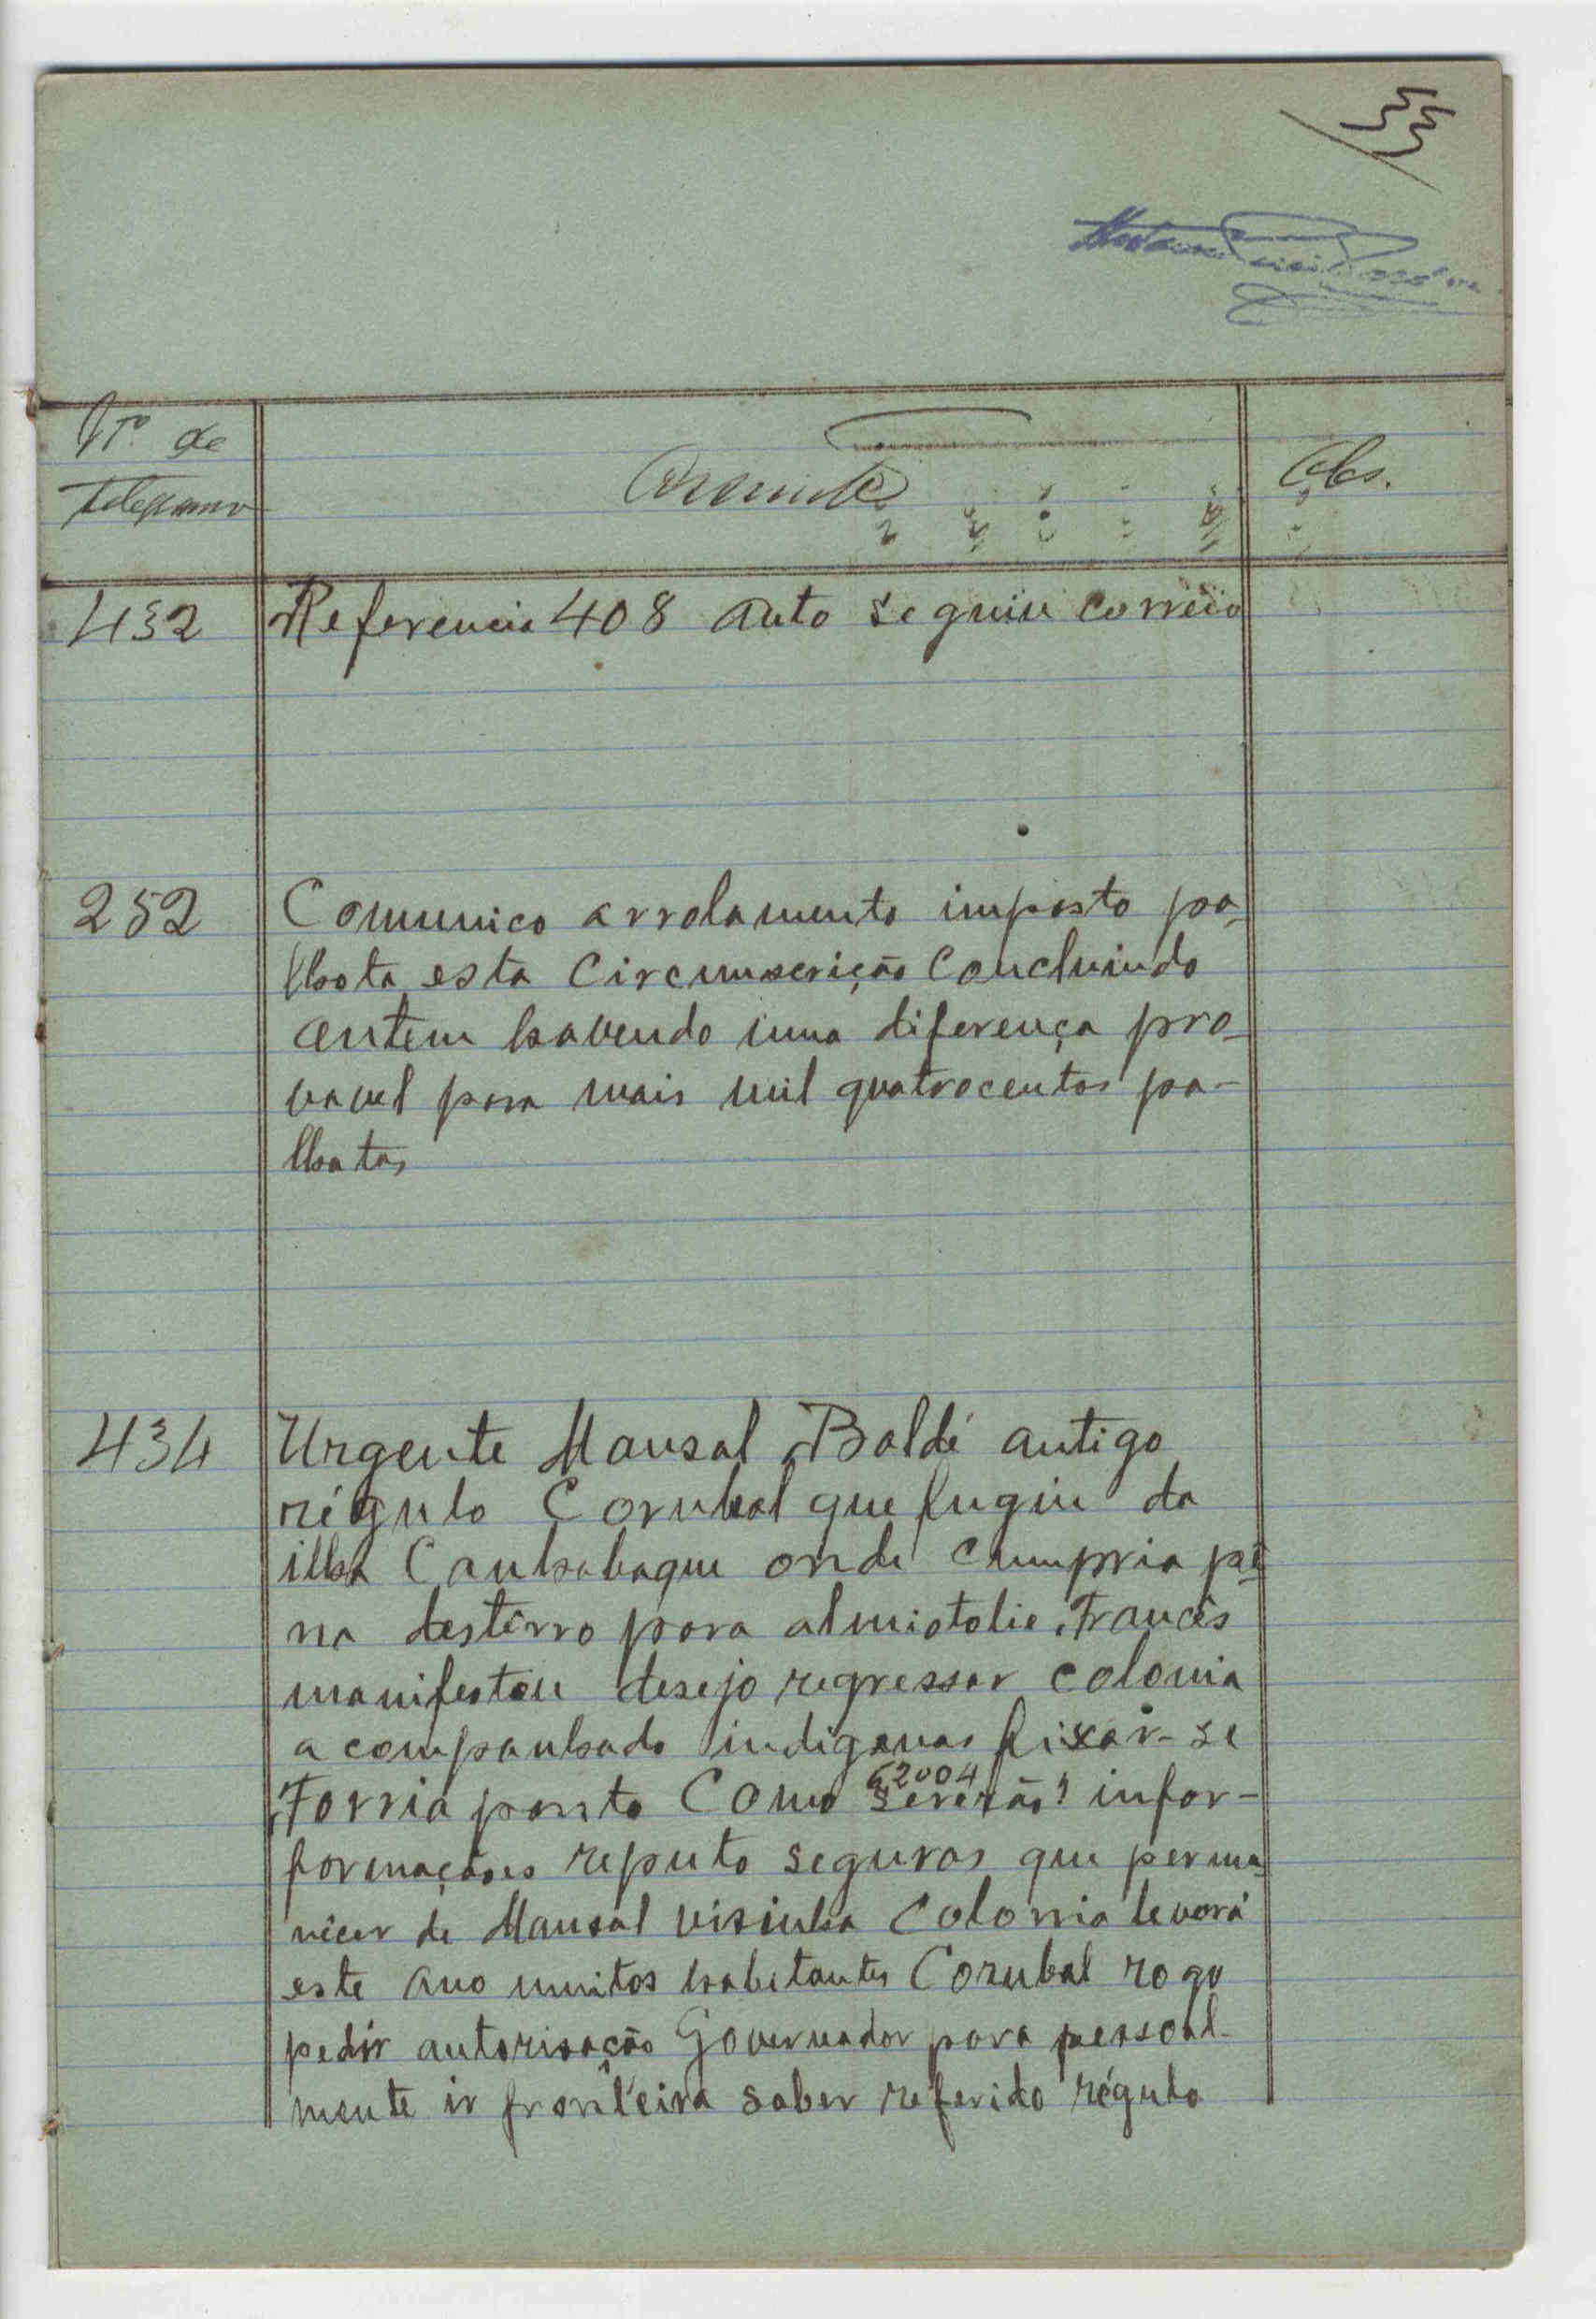 55
Nº de
Telegrama
Assunto
Obs.
432
Referencia 408 auto seguiu correio
252
Comunico arrolamento imposto pa-
lhota esta Circumscrição Concluindo
ontem havendo uma diferença pro-
vavel para mais mil quatrocentos pa-
lhotas
434
Urgente Mansal Baldé antigo
régulo Corubal que fugiu da
ilha Canhabaque onde cumpria pê-
na destêrro para Francês
manifestou desejo regressar colonia
acompanhado indiganas fixar-se
Forria ponto Como 62004 infor-
formações reputo seguras que perma-
necer de Mansal visinha Colonia levará
este ano muitos habitantes Corubal rogo
pedir autorisação Governador para pessoal-
mente ir fronteira saber referido régulo